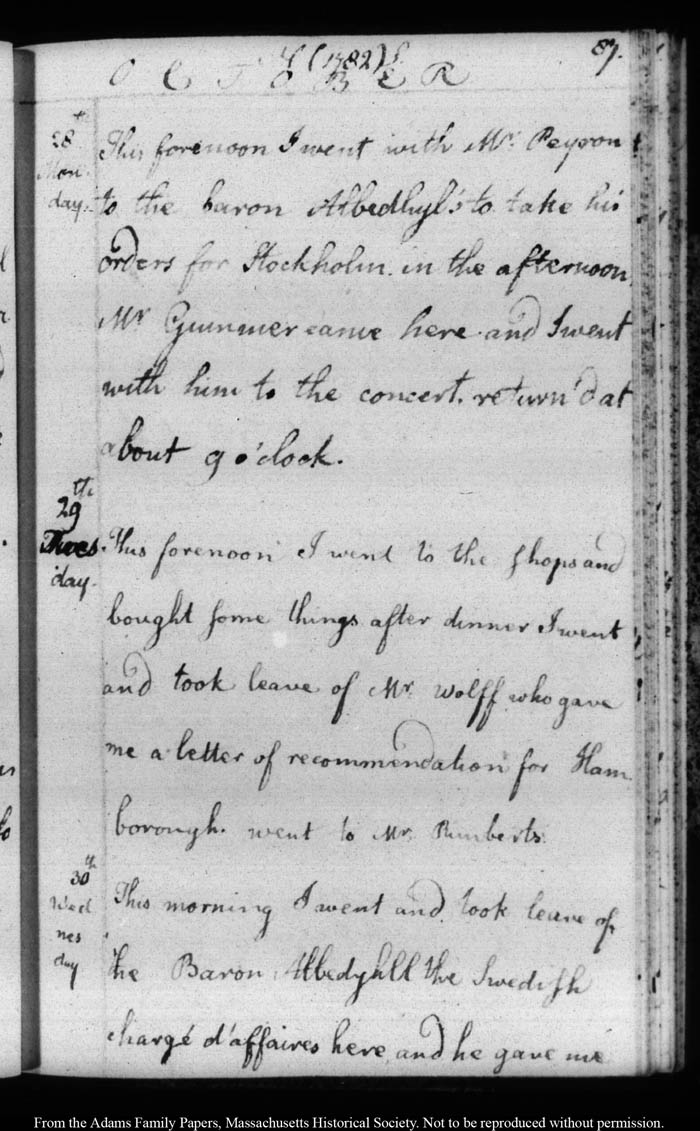 87.
(1782)
OCTOBER
28th Mon-day. This forenoon I went with Mr. Peyron
to the baron Albedhyl's to take his
orders for Stockholm. in the afternoon
Mr Gummer came here and I went
with him to the concert. return'd at
about 9 o'clock.
29th Tues-day. This forenoon I went to the shops and
bought some things after dinner I went
and took leave of Mr. Wolff who gave
me a letter of recommendation for Ham
borough. went to Mr. Rimberts
30th Wednesday This morning I went and took leave of
the Baron Albedyhll the Swedish
chargé d'affaires here, and he gave me
From the Adams Family Papers, Massachusetts Historical Society. Not to be reproduced without permission.